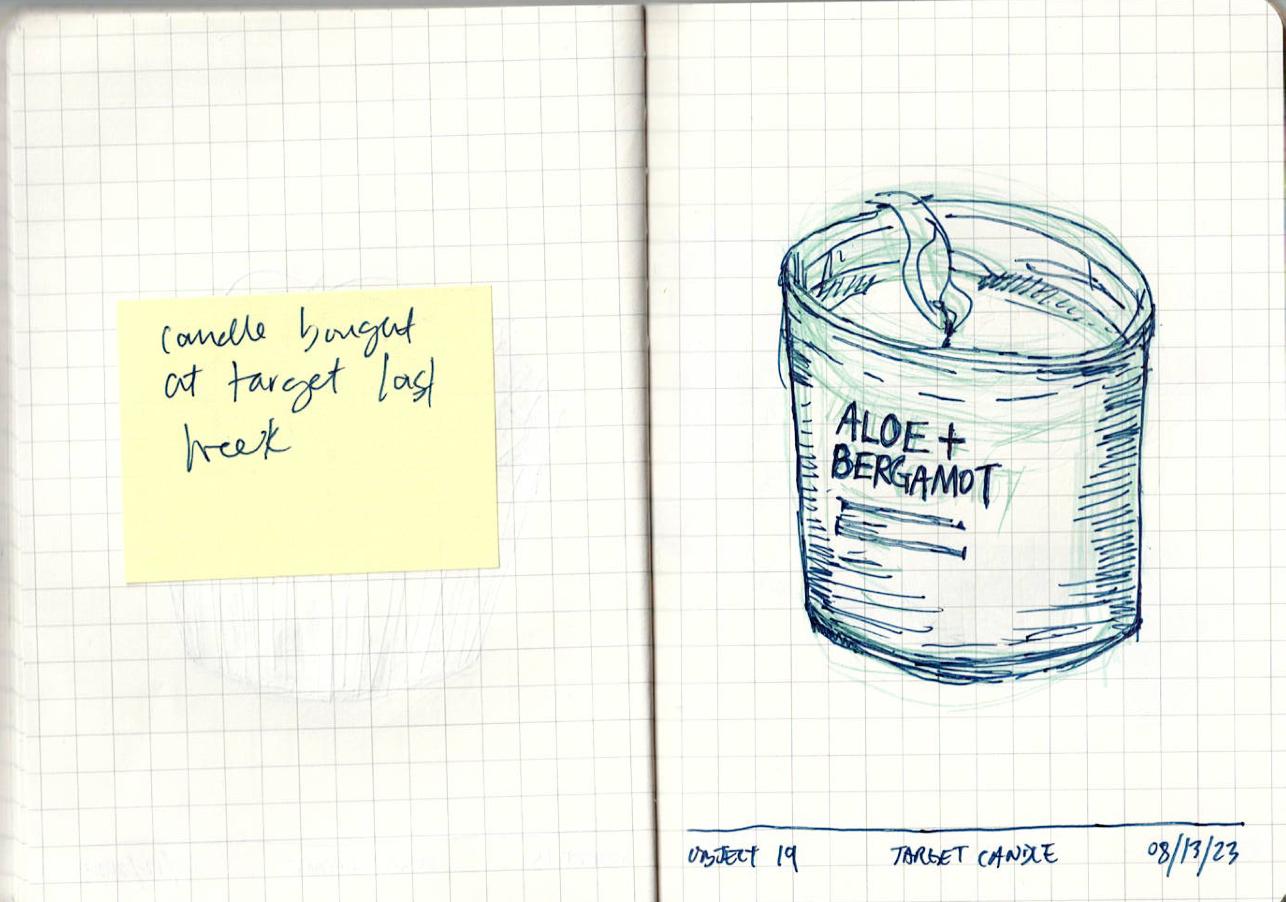 candle bought
at target last
week
ALOE +
BERGAMOT
OBJECT 19 TARGET CANDLE 08/13/23